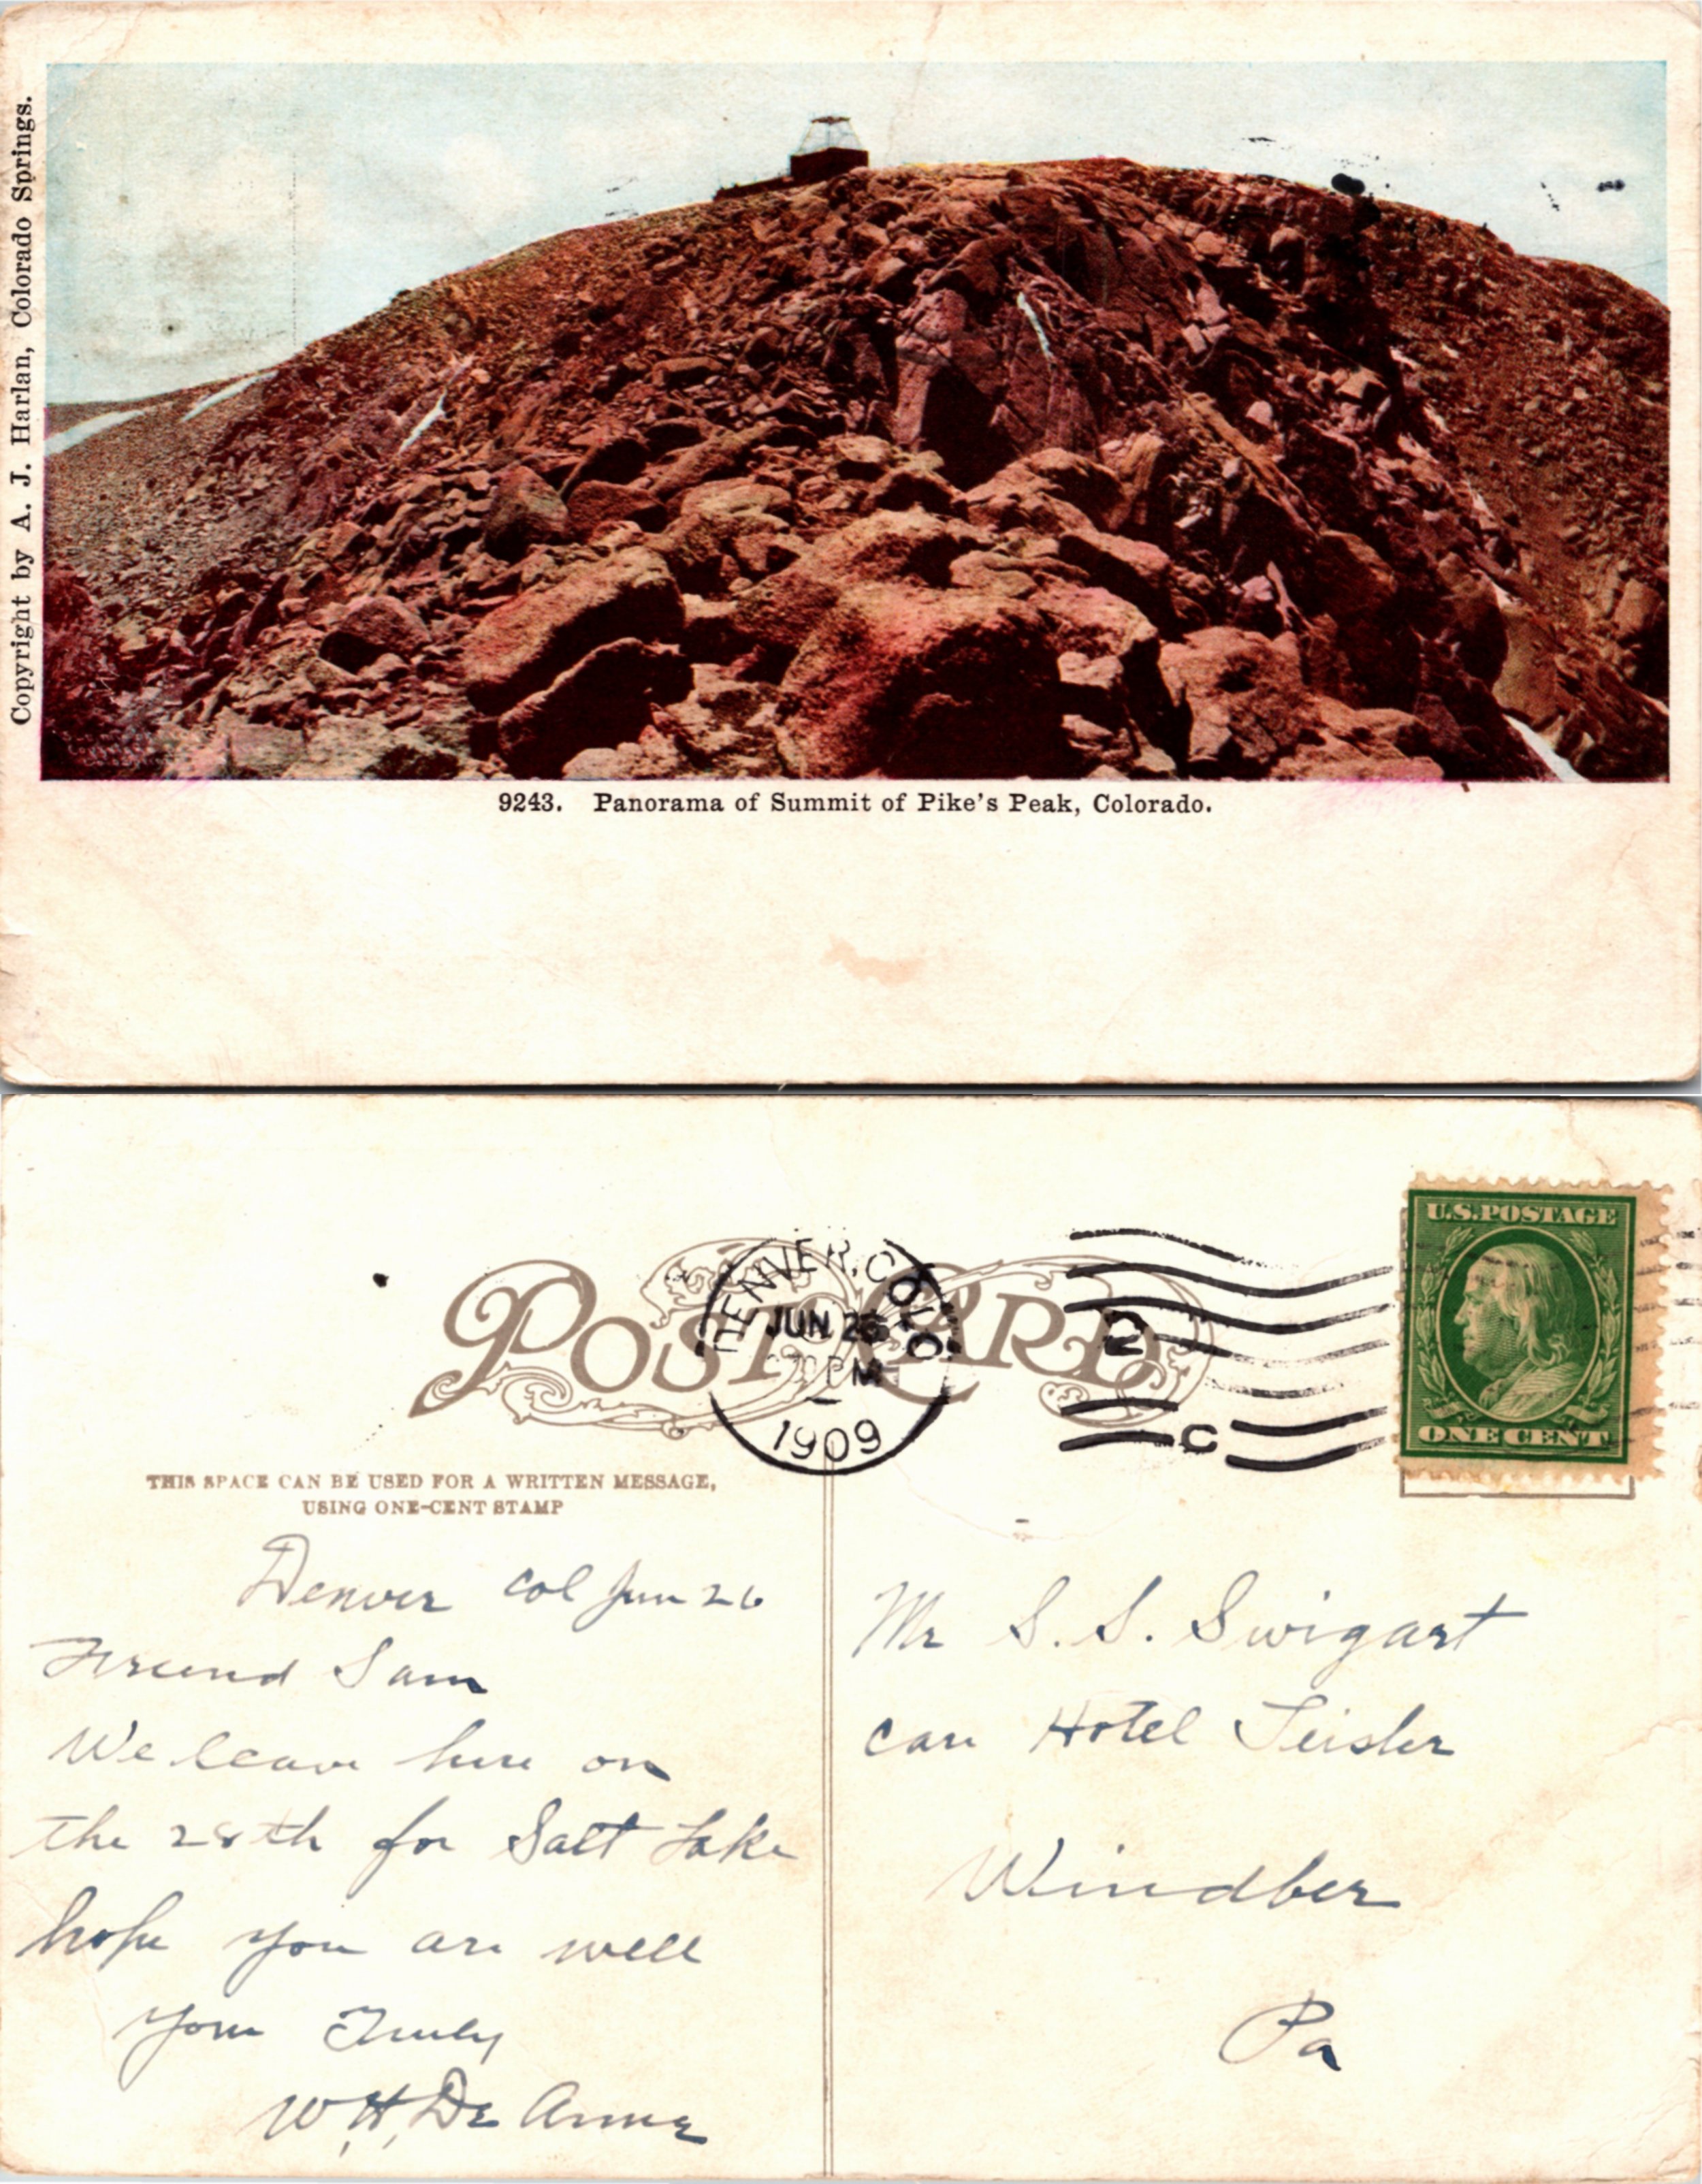 Copyright by A. J. Harlan, Colorado Springs.
9243. Panorama of Summit of Pike's Peak, Colorado.
POST CARD
DENVER, COLO
JUN 26
PM
1909
D
C
U.S. POSTAGE
ONE CENT
THIS SPACE CAN BE USED FOR A WRITTEN MESSAGE,
USING ONE-CENT STAMP
Denver Col Jun 26
Friend Sam
We leave here on
the 28th for Salt Lake
hope you are well
Your Truly
W. H. De
Mr S. S. Swigart
care Hotel
Windber
Pa